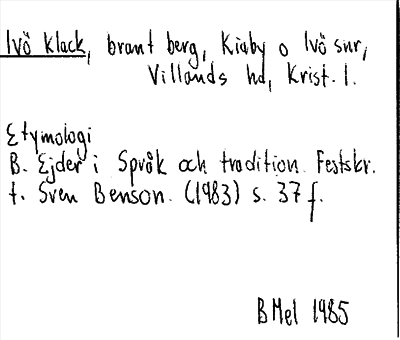 Ivö Klack, brant berg, Kiaby o Ivö snr,
Villands hd, Krist. l.
Etymologi
B. Ejder i Språk och tradition. Festskr.
t. Sven Benson. (1983) s. 37 f.
B Mel 1985